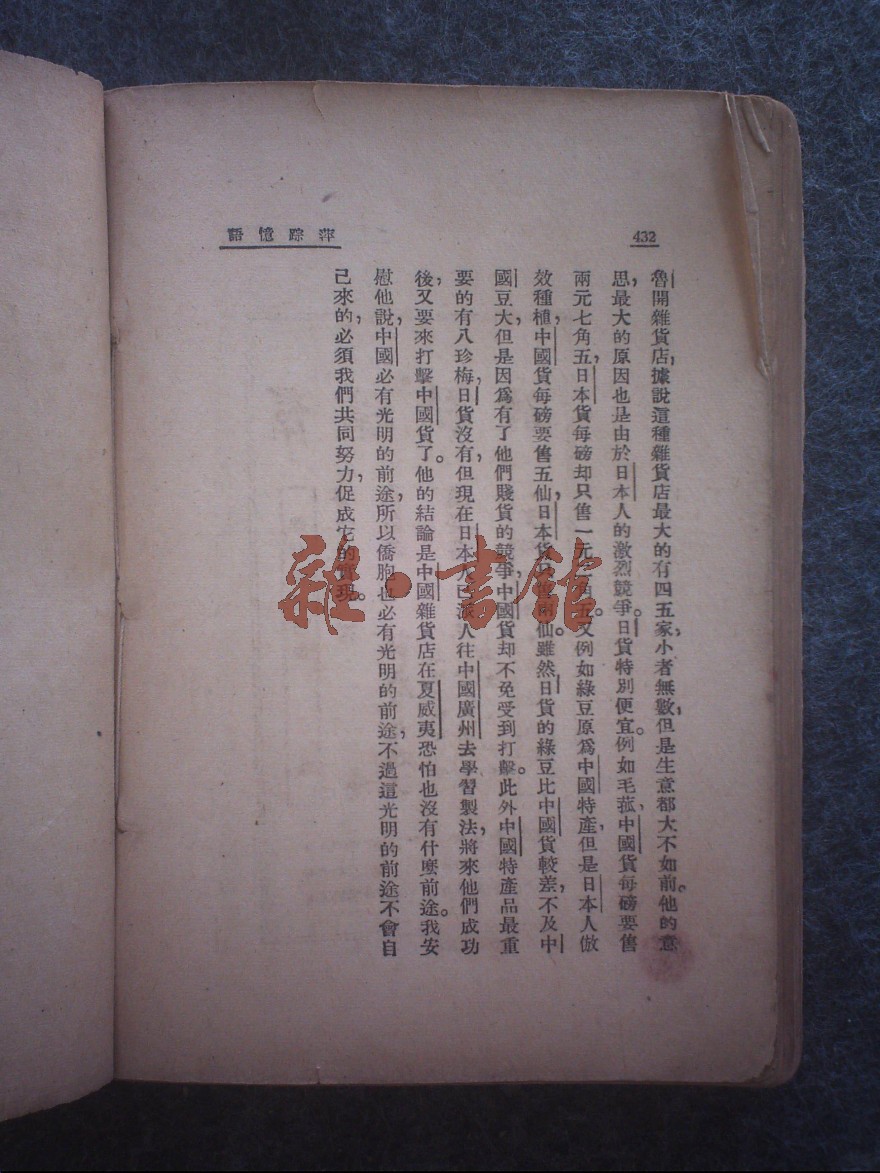 萍踪憶語
432
魯開雜貨店，據說這種雜貨店最大的有四五家，小者無數，但是生意都大不如前。他的意
思，最大的原因也是由於日本人的激烈競爭。日貨特別便宜。例如毛菰，中國貨每磅要售
兩元七角五，日本貨每磅却只售一元 角五。又例如綠豆原爲中國特產，但是日本人倣
效種植，中國貨每磅要售五仙，日本貨 仙。雖然日貨的綠豆比中國貨較差，不及中
國豆大，但是因爲有了他們賤貨的競爭，中國貨却不免受到打擊。此外中國特產品最重
要的有八珍梅，日貨沒有，但現在日本人已派人往中國廣州去學習製法，將來他們成功
後，又要來打擊中國貨了。他的結論是中國雜貨店在夏威夷恐怕也沒有什麼前途。我安
慰他說，中國必有光明的前途，所以僑胞也必有光明的前途，不過這光明的前途不會自
己來的，必須我們共同努力，促成它的實現。
雜·書館